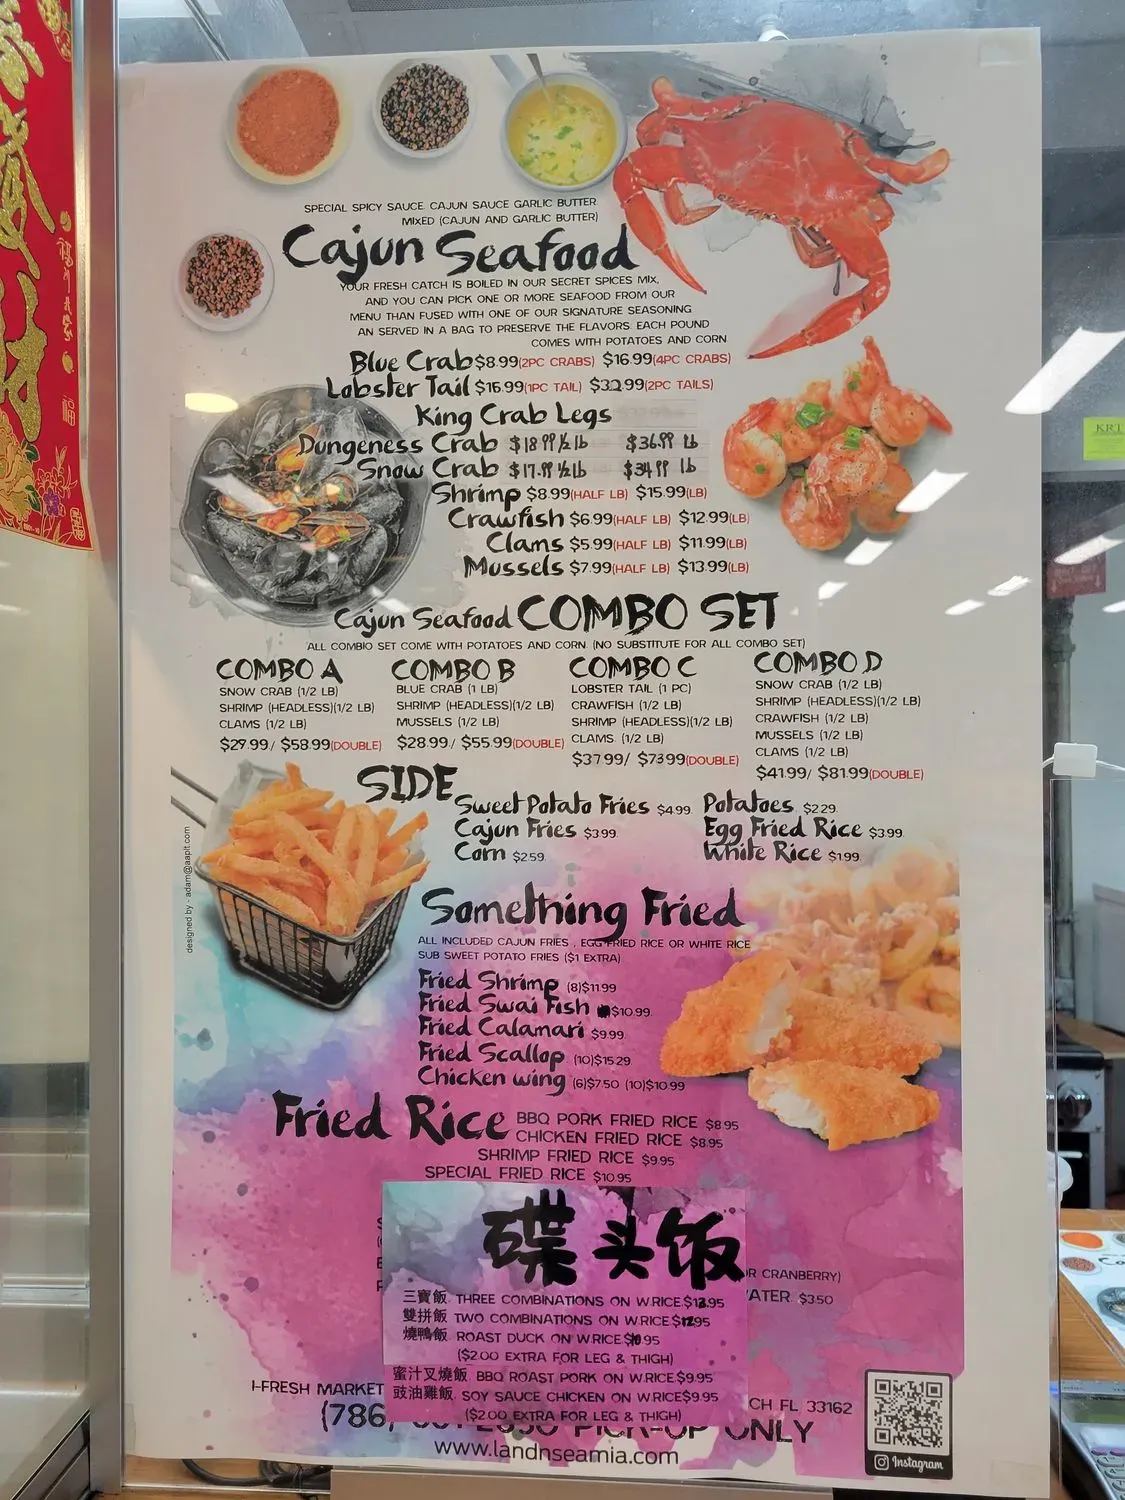 SPECIAL SPICY SAUCE. CAJUN SAUCE GARLIC BUTTER
MIXED (CAJUN AND GARLIC BUTTER)
Cajun Seafood
YOUR FRESH CATCH IS BOILED IN OUR SECRET SPICES MIX,
AND YOU CAN PICK ONE OR MORE SEAFOOD FROM OUR
MENU THAN FUSED WITH ONE OF OUR SIGNATURE SEASONING
AN SERVED IN A BAG TO PRESERVE THE FLAVORS. EACH POUND
COMES WITH POTATOES AND CORN
Blue Crab $8.99(2PC CRABS) $16.99(4PC CRABS)
Lobster Tail $16.99(1PC TAIL) $32.99(2PC TAILS)
King Crab Legs
Dungeness Crab $18.99 ½ lb $36.99 lb
Snow Crab $17.99 ½ lb $34.99 lb
Shrimp $8.99(HALF LB) $15.99(LB)
Crawfish $6.99(HALF LB) $12.99(LB)
Clams $5.99(HALF LB) $11.99(LB)
Mussels $7.99(HALF LB) $13.99(LB)
Cajun Seafood COMBO SET
ALL COMBIO SET COME WITH POTATOES AND CORN (NO SUBSTITUTE FOR ALL COMBO SET)
COMBO A
SNOW CRAB (1/2 LB)
SHRIMP (HEADLESS)(1/2 LB)
CLAMS (1/2 LB)
$29.99/ $58.99(DOUBLE)
COMBO B
BLUE CRAB (1 LB)
SHRIMP (HEADLESS)(1/2 LB)
MUSSELS (1/2 LB)
$28.99/ $55.99(DOUBLE)
COMBO C
LOBSTER TAIL (1 PC)
CRAWFISH (1/2 LB)
SHRIMP (HEADLESS)(1/2 LB)
CLAMS (1/2 LB)
$37.99/ $73.99(DOUBLE)
COMBO D
SNOW CRAB (1/2 LB)
SHRIMP (HEADLESS)(1/2 LB)
CRAWFISH (1/2 LB)
MUSSELS (1/2 LB)
CLAMS (1/2 LB)
$41.99/ $81.99(DOUBLE)
SIDE
Sweet Potato Fries $4.99
Cajun Fries $3.99
Corn $2.59
Potatoes $2.29
Egg Fried Rice $3.99
White Rice $1.99
designed by - adam@aapit.com
Something Fried
ALL INCLUDED CAJUN FRIES , EGG FRIED RICE OR WHITE RICE
SUB SWEET POTATO FRIES ($1 EXTRA)
Fried Shrimp (8)$11.99
Fried Swai Fish $10.99
Fried Calamari $9.99
Fried Scallop (10)$15.29
Chicken wing (6)$7.50 (10)$10.99
Fried Rice
BBQ PORK FRIED RICE $8.95
CHICKEN FRIED RICE $8.95
SHRIMP FRIED RICE $9.95
SPECIAL FRIED RICE $10.95
碟头饭
三寶飯 THREE COMBINATIONS ON W.RICE.$13.95
雙拼飯 TWO COMBINATIONS ON W.RICE $12.95
燒鴨飯 ROAST DUCK ON W.RICE $10.95
($2.00 EXTRA FOR LEG & THIGH)
蜜汁叉燒飯 BBQ ROAST PORK ON W.RICE $9.95
豉油雞飯 SOY SAUCE CHICKEN ON W.RICE $9.95
($2.00 EXTRA FOR LEG & THIGH)
OR CRANBERRY)
WATER $3.50
I-FRESH MARKET
CH FL 33162
(786) PICK-UP ONLY
www.landnseamia.com
Instagram
KRI
福